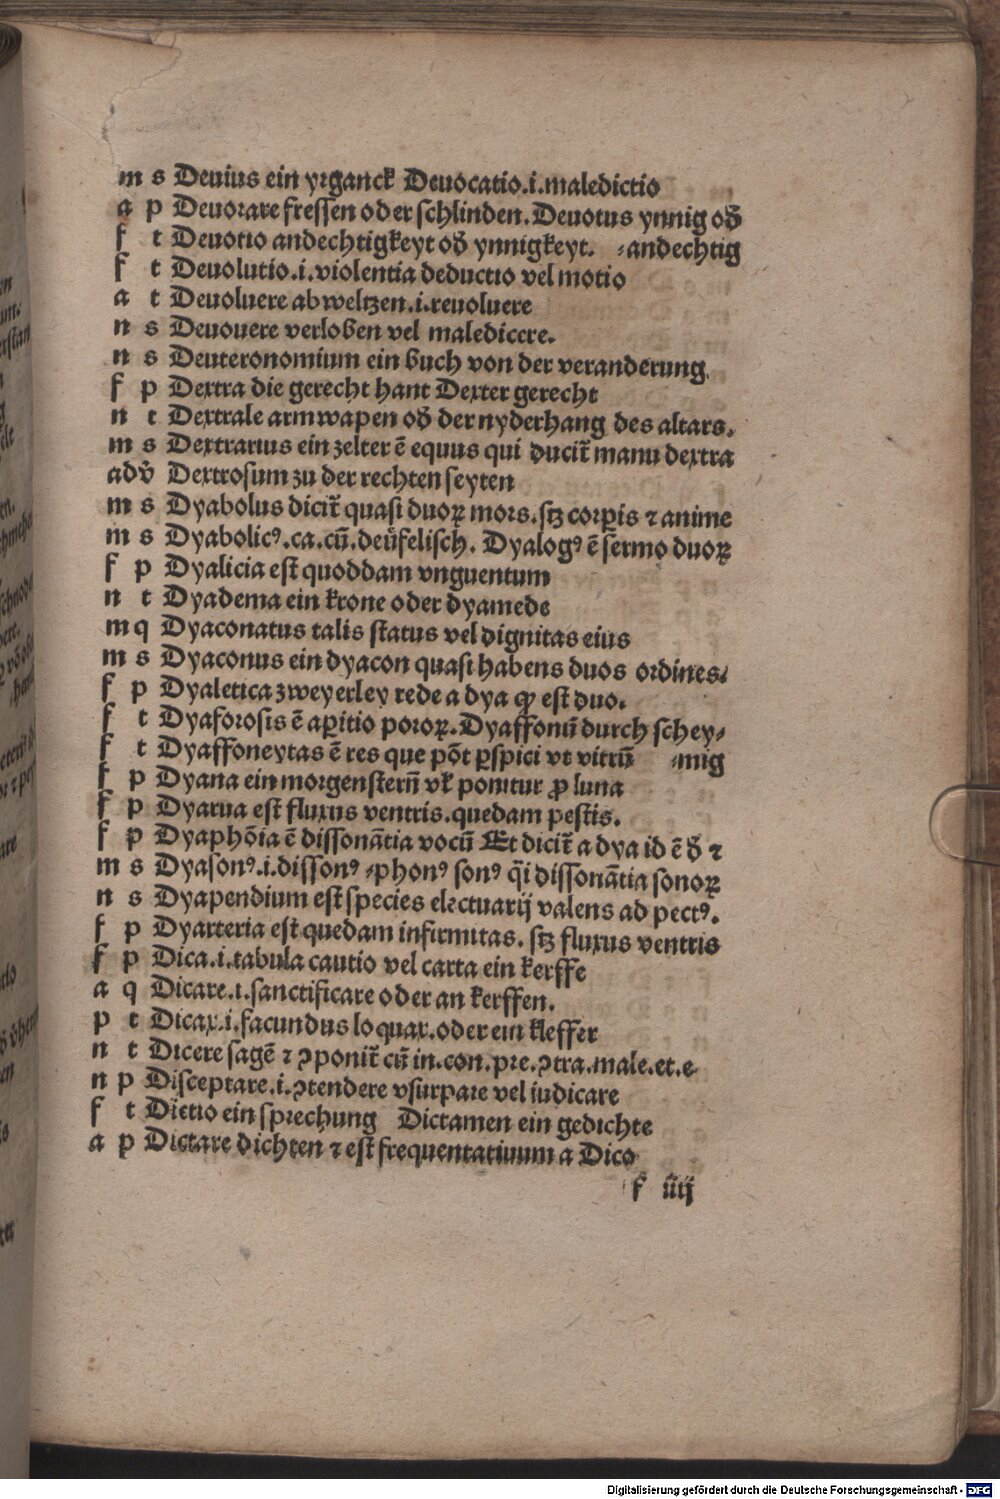 m s Deuius ein yrganck Deuocatio.i.maledictio
a p Deuorare fressen oder schlinden. Deuotus ynnig od̄
f t Deuotio andechtigkeyt od̄ ynnigkeyt. ⸗andechtig
f t Deuolutio.i.violentia deductio vel motio
a t Deuoluere abweltzen.i.reuoluere
n s Deuouere verloben vel maledicere.
n s Deuteronomium ein buch von der veranderung.
f p Dextra die gerecht hant Dexter gerecht
n t Dextrale armwapen od̄ der nyderhang des altars.
m s Dextrarius ein zelter ē equus qui ducit᷑ manu dextra
adv̄ Dextrosum zu der rechten seyten
m s Dyabolus dicit᷑ quasi duoꝝ mors.stz corꝑis ⁊ anime
m s Dyabolicꝰ.ca.cū.deüfelisch. Dyalogꝰ ē sermo duoꝝ
f p Dyalicia est quoddam vnguentum
n t Dyadema ein krone oder dyamede
m q Dyaconatus talis status vel dignitas eius
m s Dyaconus ein dyacon quasi habens duos ordines⸗
f p Dyaletica zweyerley rede a dya ꝙ est duo.
f t Dyaforosis ē aꝑitio poroꝝ.Dyaffonū durch schey⸗
f t Dyaffoneytas ē res que pōt ꝑspici vt vitrū ⸗mig
f p Dyana ein morgensterñ vł ponitur ꝓ luna
f p Dyarua est fluxus ventris.quedam pestis.
f p Dyaphōia ē dissonātia vocū Et dicit᷑ a dya id ē d̄ ⁊
m s Dyasonꝰ.i.dissonꝰ ⸗phonꝰ sonꝰ q̄i dissonātia sonoꝝ
n s Dyapendium est species electuarij valens ad pectꝰ.
f p Dyarteria est quedam infirmitas. stz fluxus ventris
f p Dica.i.tabula cautio vel carta ein kerffe
a q Dicare.i.sanctificare oder an kerffen.
p t Dicax.i.facundus loquax.oder ein kleffer
n t Dicere sagē ⁊ ꝯponit᷑ cū in.con.pre.ꝯtra.male.et.e
n p Disceptare.i.ꝯtendere vsurpare vel iudicare
f t Dictio ein sprechung Dictamen ein gedichte
a p Dictare dichten ⁊ est frequentatiuum a Dico
f iiij
Digitalisierung gefördert durch die Deutsche Forschungsgemeinschaft - DFG